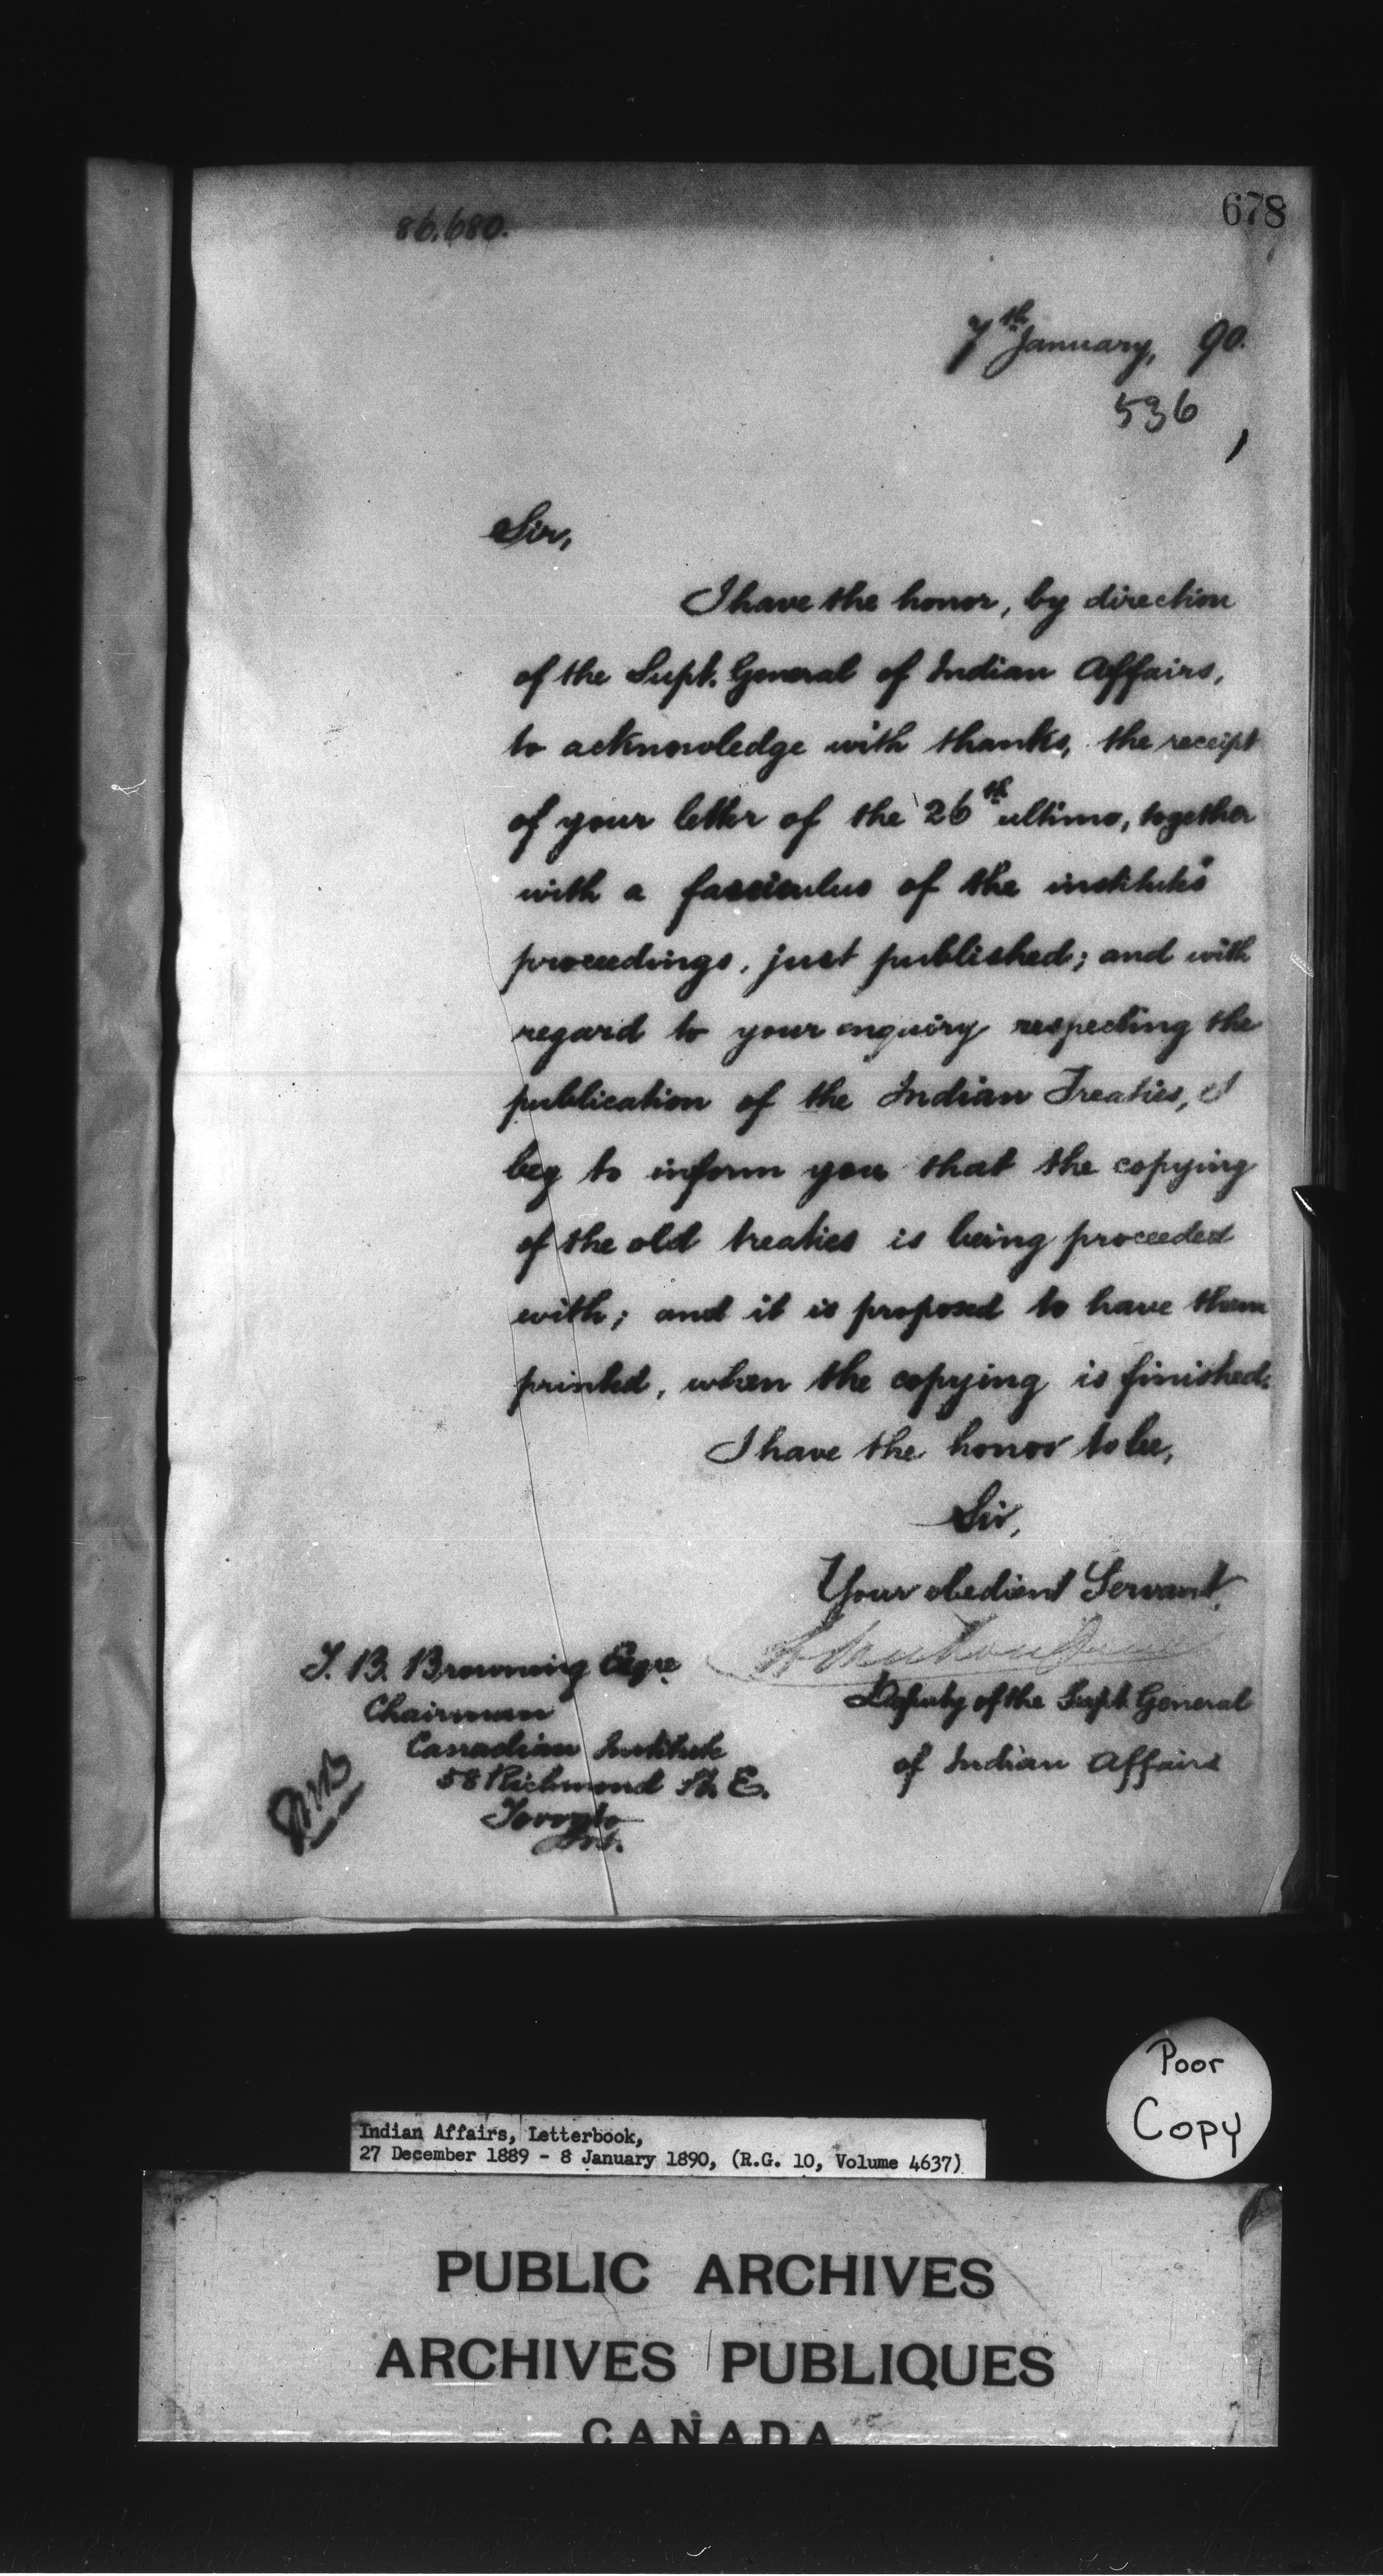 678
86.680.
7th January, 90.
536
Sir,
I have the honor, by direction
of the Supt. General of Indian Affairs,
to acknowledge with thanks, the receipt
of your letter of the 26th ultimo, together
with a fasciculus of the institute's
proceedings, just published; and with
regard to your enquiry respecting the
publication of the Indian Treaties, I
beg to inform you that the copying
of the old treaties is being proceeded
with; and it is proposed to have them
printed, when the copying is finished.
I have the honor to be,
Sir,
Your obedient Servant,
Deputy of the Supt. General
of Indian Affairs
T. B. Browning Esqre
Chairman
Canadian Institute
58 Richmond St. E.
Toronto
Ont.
Poor
Copy
Indian Affairs, Letterbook,
27 December 1889 - 8 January 1890, (R.G. 10, Volume 4637)
PUBLIC ARCHIVES
ARCHIVES PUBLIQUES
CANADA